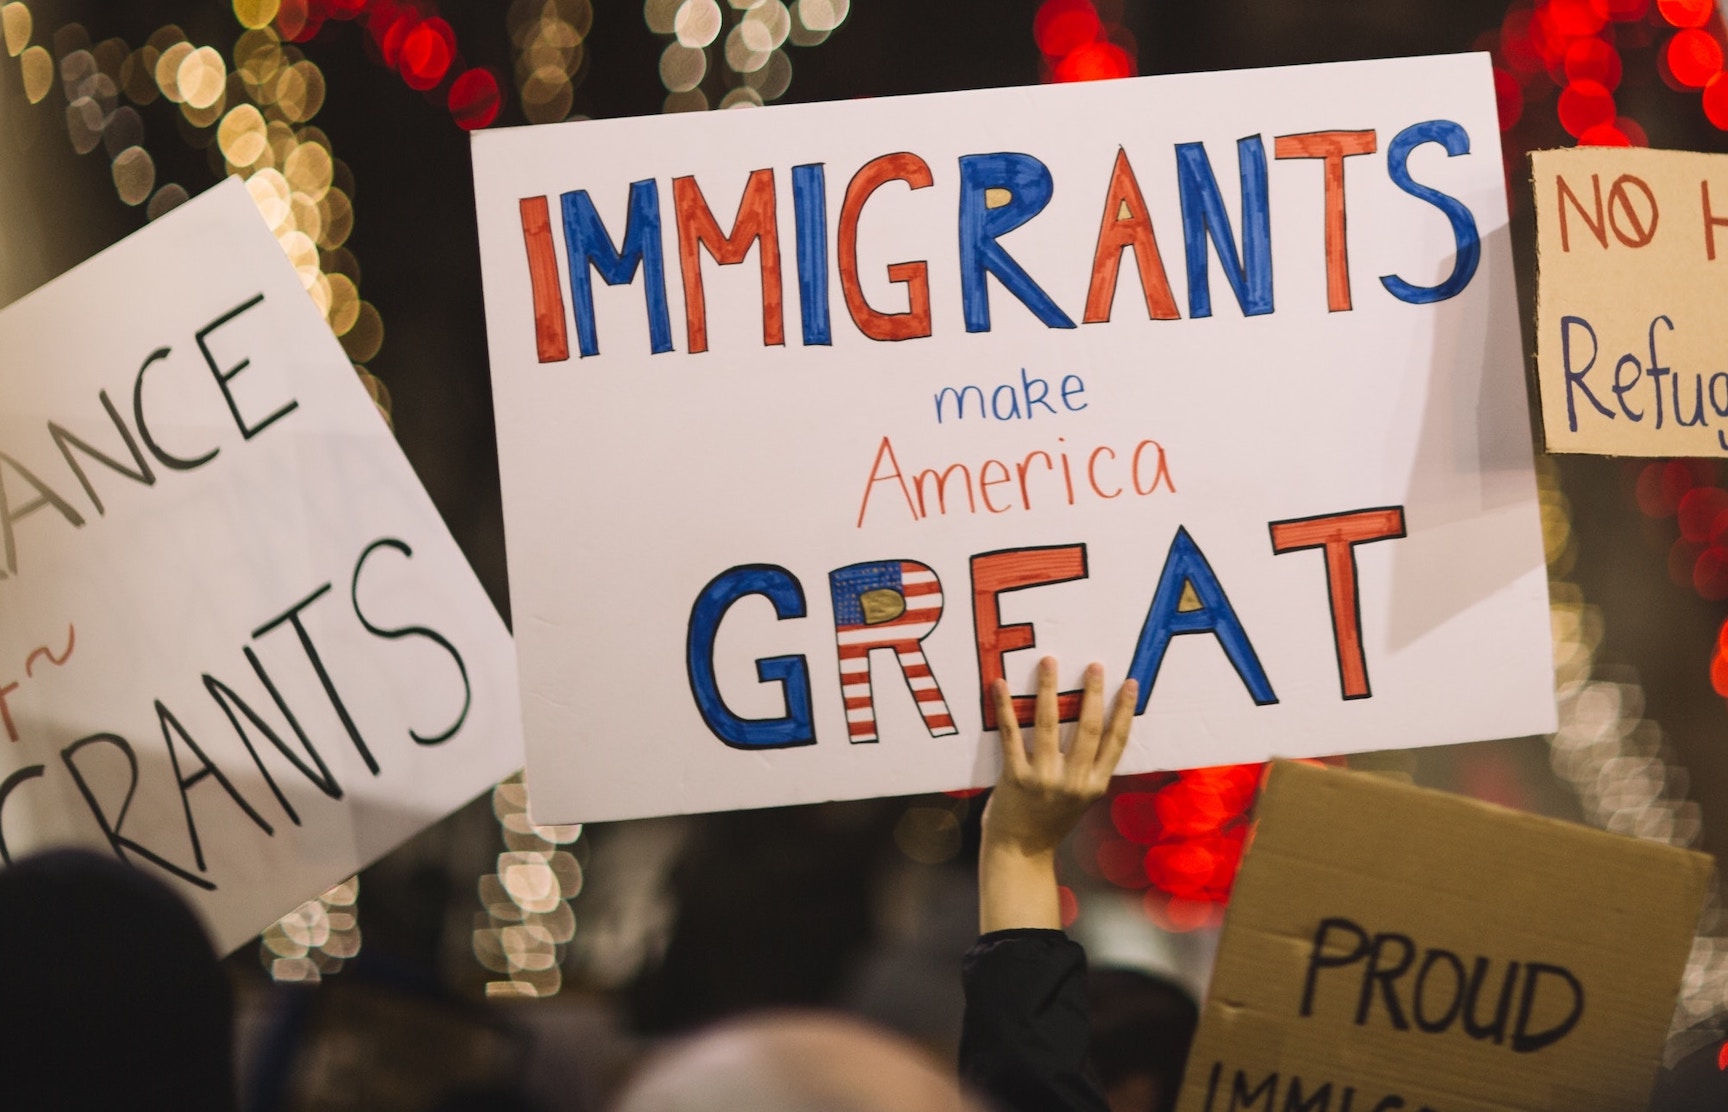 ANCE
GRANTS
IMMIGRANTS
make
America
GREAT
NO H
Refug
PROUD
IMMIG